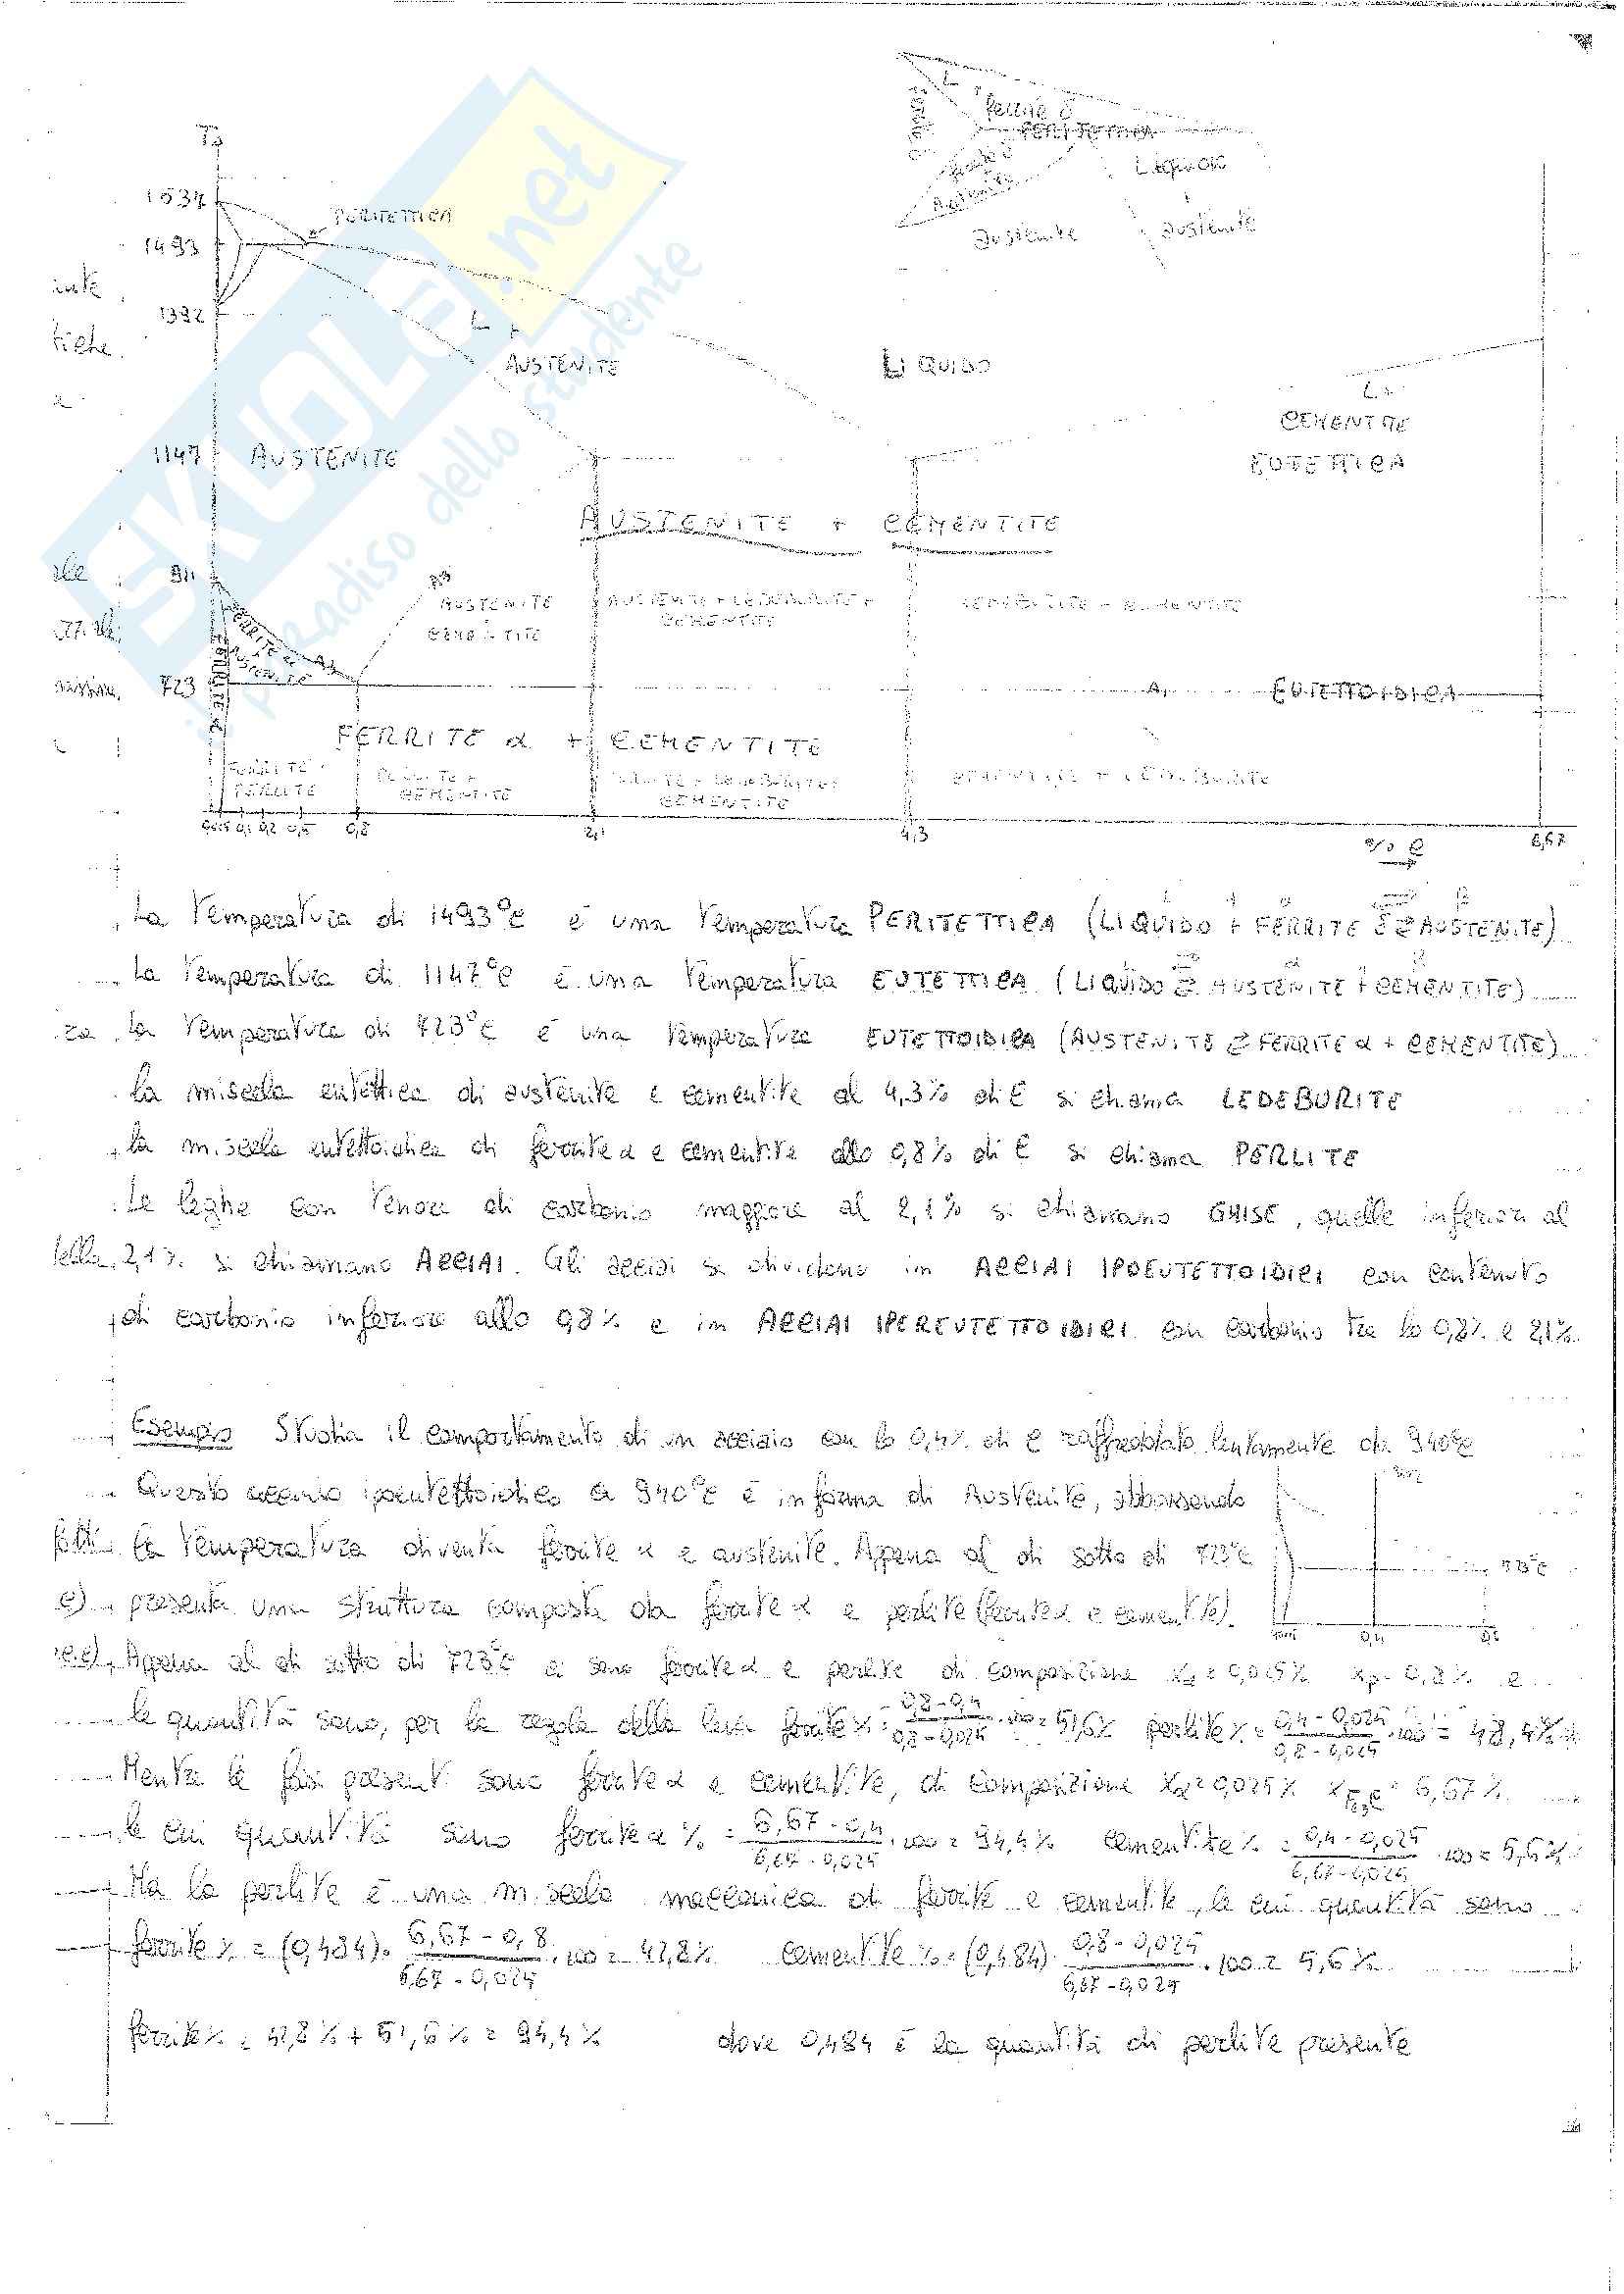 SKUOLA.net
il paradiso dello studente
Ferrite δ
PERITETTICA
LIQUIDO
Austenite
Austenite
1534
1493
PERITETTICA
1392
L +
AUSTENITE
LIQUIDO
L +
CEMENTITE
1147 AUSTENITE
EUTETTICA
AUSTENITE + CEMENTITE
911
AUSTENITE
CEMENTITE
AUSTENITE + LEDEBURITE +
CEMENTITE
LEDEBURITE + CEMENTITE
723
A₁
EUTETTOIDICA
FERRITE α + CEMENTITE
FERRITE +
PERLITE
PERLITE +
CEMENTITE
PERLITE + LEDEBURITE +
CEMENTITE
CEMENTITE + LEDEBURITE
0,025 0,1 0,2 0,5 0,8 2,1 4,3 6,67
% C
La temperatura di 1493°C è una temperatura PERITETTICA (LIQUIDO + FERRITE δ ⇄ AUSTENITE)
La temperatura di 1147°C è una temperatura EUTETTICA (LIQUIDO ⇄ AUSTENITE + CEMENTITE)
La temperatura di 723°C è una temperatura EUTETTOIDICA (AUSTENITE ⇄ FERRITE α + CEMENTITE)
La miscela eutettica di austenite e cementite al 4,3% di C si chiama LEDEBURITE
La miscela eutettoidica di ferrite α e cementite allo 0,8% di C si chiama PERLITE
Le leghe con tenore di carbonio maggiore al 2,1% si chiamano GHISE, quelle inferiori al
2,1% si chiamano ACCIAI. Gli acciai si dividono in ACCIAI IPOEUTETTOIDICI con contenuto
di carbonio inferiore allo 0,8% e in ACCIAI IPEREUTETTOIDICI con carbonio tra lo 0,8% e 2,1%.
Esempio Studia il comportamento di un acciaio con lo 0,4% di C raffreddato lentamente da 940°C
Questo acciaio ipoeutettoidico a 940°C è in forma di Austenite, abbassando
la temperatura diventa ferrite α e austenite. Appena al di sotto di 723°C
723°C
presenta una struttura composta da ferrite α e perlite (ferrite α e cementite).
0,025 0,4 0,8
Appena al di sotto di 723°C ci sono ferrite α e perlite di composizione xα = 0,025% xp = 0,8% e
le quantità sono, per la regola della leva ferrite % = (0,8 - 0,4)/(0,8 - 0,025) · 100 = 51,6% perlite % = (0,4 - 0,025)/(0,8 - 0,025) · 100 = 48,4%
Mentre le fasi presenti sono ferrite α e cementite, di composizione xα = 0,025% xFe₃C = 6,67%
le cui quantità sono ferrite α % = (6,67 - 0,4)/(6,67 - 0,025) · 100 = 94,4% cementite % = (0,4 - 0,025)/(6,67 - 0,025) · 100 = 5,6%
Ma la perlite è una miscela meccanica di ferrite e cementite, le cui quantità sono
ferrite % = (0,484) · (6,67 - 0,8)/(6,67 - 0,025) · 100 = 42,8% cementite % = (0,484) · (0,8 - 0,025)/(6,67 - 0,025) · 100 = 5,6%
ferrite % = 42,8% + 51,6% = 94,4% dove 0,484 è la quantità di perlite presente